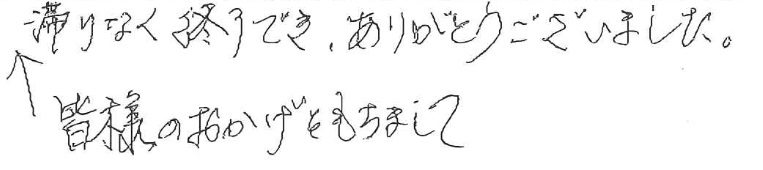 滞りなく終了でき、ありがとうございました。
皆様のおかげをもちまして